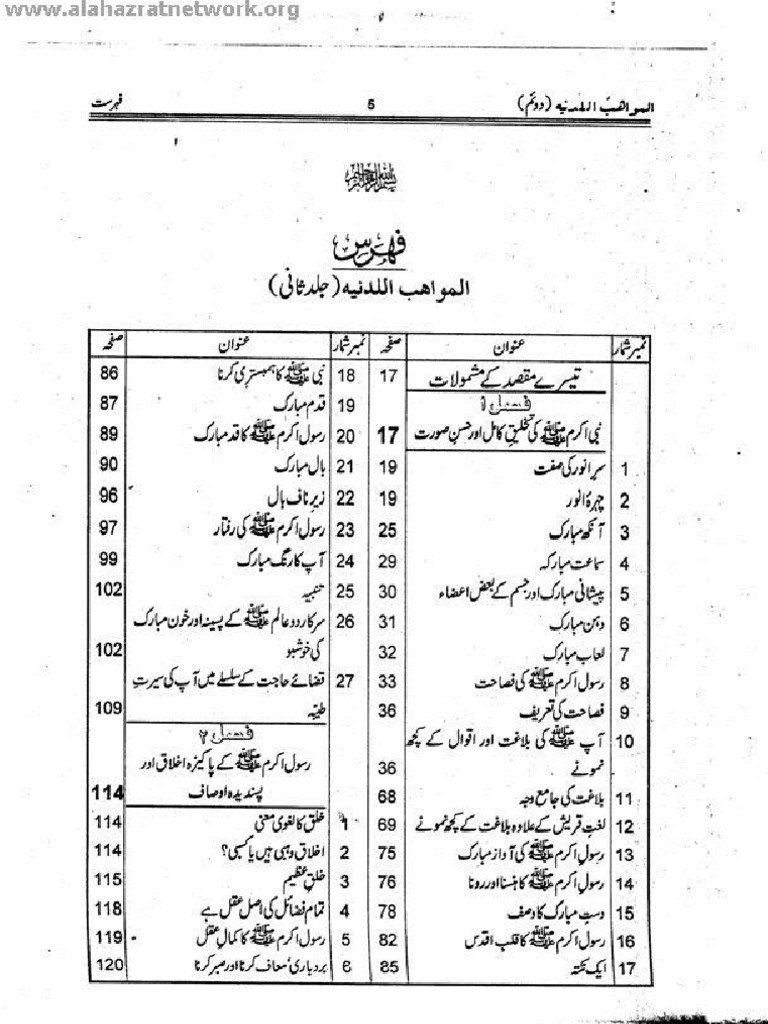 www.alahazratnetwork.org
المواهب اللدنیہ (دوئم) 5 فہرست
بسم اللہ الرحمن الرحیم
فہرس
المواهب اللدنیه (جلد ثانی)
نمبر شمار عنوان صفحہ
تیسرے مقصد کے مشمولات 17
فصل ۱
نبی اکرم ﷺ کی تخلیق کامل اور حسن صورت 17
1 سرِ انور کی صفت 19
2 چہرۂ انور 19
3 آنکھ مبارک 25
4 سماعت مبارکہ 29
5 پیشانی مبارک اور جسم کے بعض اعضاء 30
6 دہن مبارک 31
7 لعاب مبارک 32
8 رسول اکرم ﷺ کی فصاحت 33
9 فصاحت کی تعریف 36
10 آپ ﷺ کی بلاغت اور اقوال کے کچھ
نمونے 36
11 بلاغت کی جامع وجہ 68
12 لغتِ قریش کے علاوہ بلاغت کے کچھ نمونے 69
13 رسول اکرم ﷺ کی آواز مبارک 75
14 رسول اکرم ﷺ کا ہنسنا اور رونا 76
15 دستِ مبارک کا وصف 78
16 رسول اکرم ﷺ کا قلب اقدس 82
17 ایک نکتہ 85
نمبر شمار عنوان صفحہ
18 نبی ﷺ کا ہمبستری کرنا 86
19 قدم مبارک 87
20 رسول اکرم ﷺ کا قد مبارک 89
21 بال مبارک 90
22 زیرِ ناف بال 96
23 رسول اکرم ﷺ کی رفتار 97
24 آپ کا رنگ مبارک 99
25 تنبیہ 102
26 سرکار دو عالم ﷺ کے پسینہ اور خون مبارک
کی خوشبو 102
27 قضائے حاجت کے سلسلے میں آپ کی سیرتِ
طیبہ 109
فصل ۲
رسول اکرم ﷺ کے پاکیزہ اخلاق اور
پسندیدہ اوصاف 114
1 خلق کا لغوی معنی 114
2 اخلاق وہبی ہیں یا کسبی؟ 114
3 خلقِ عظیم 115
4 تمام فضائل کی اصل عقل ہے 118
5 رسول اکرم ﷺ کا کمالِ عقل 119
6 بردباری‘ معاف کرنا اور صبر کرنا 120